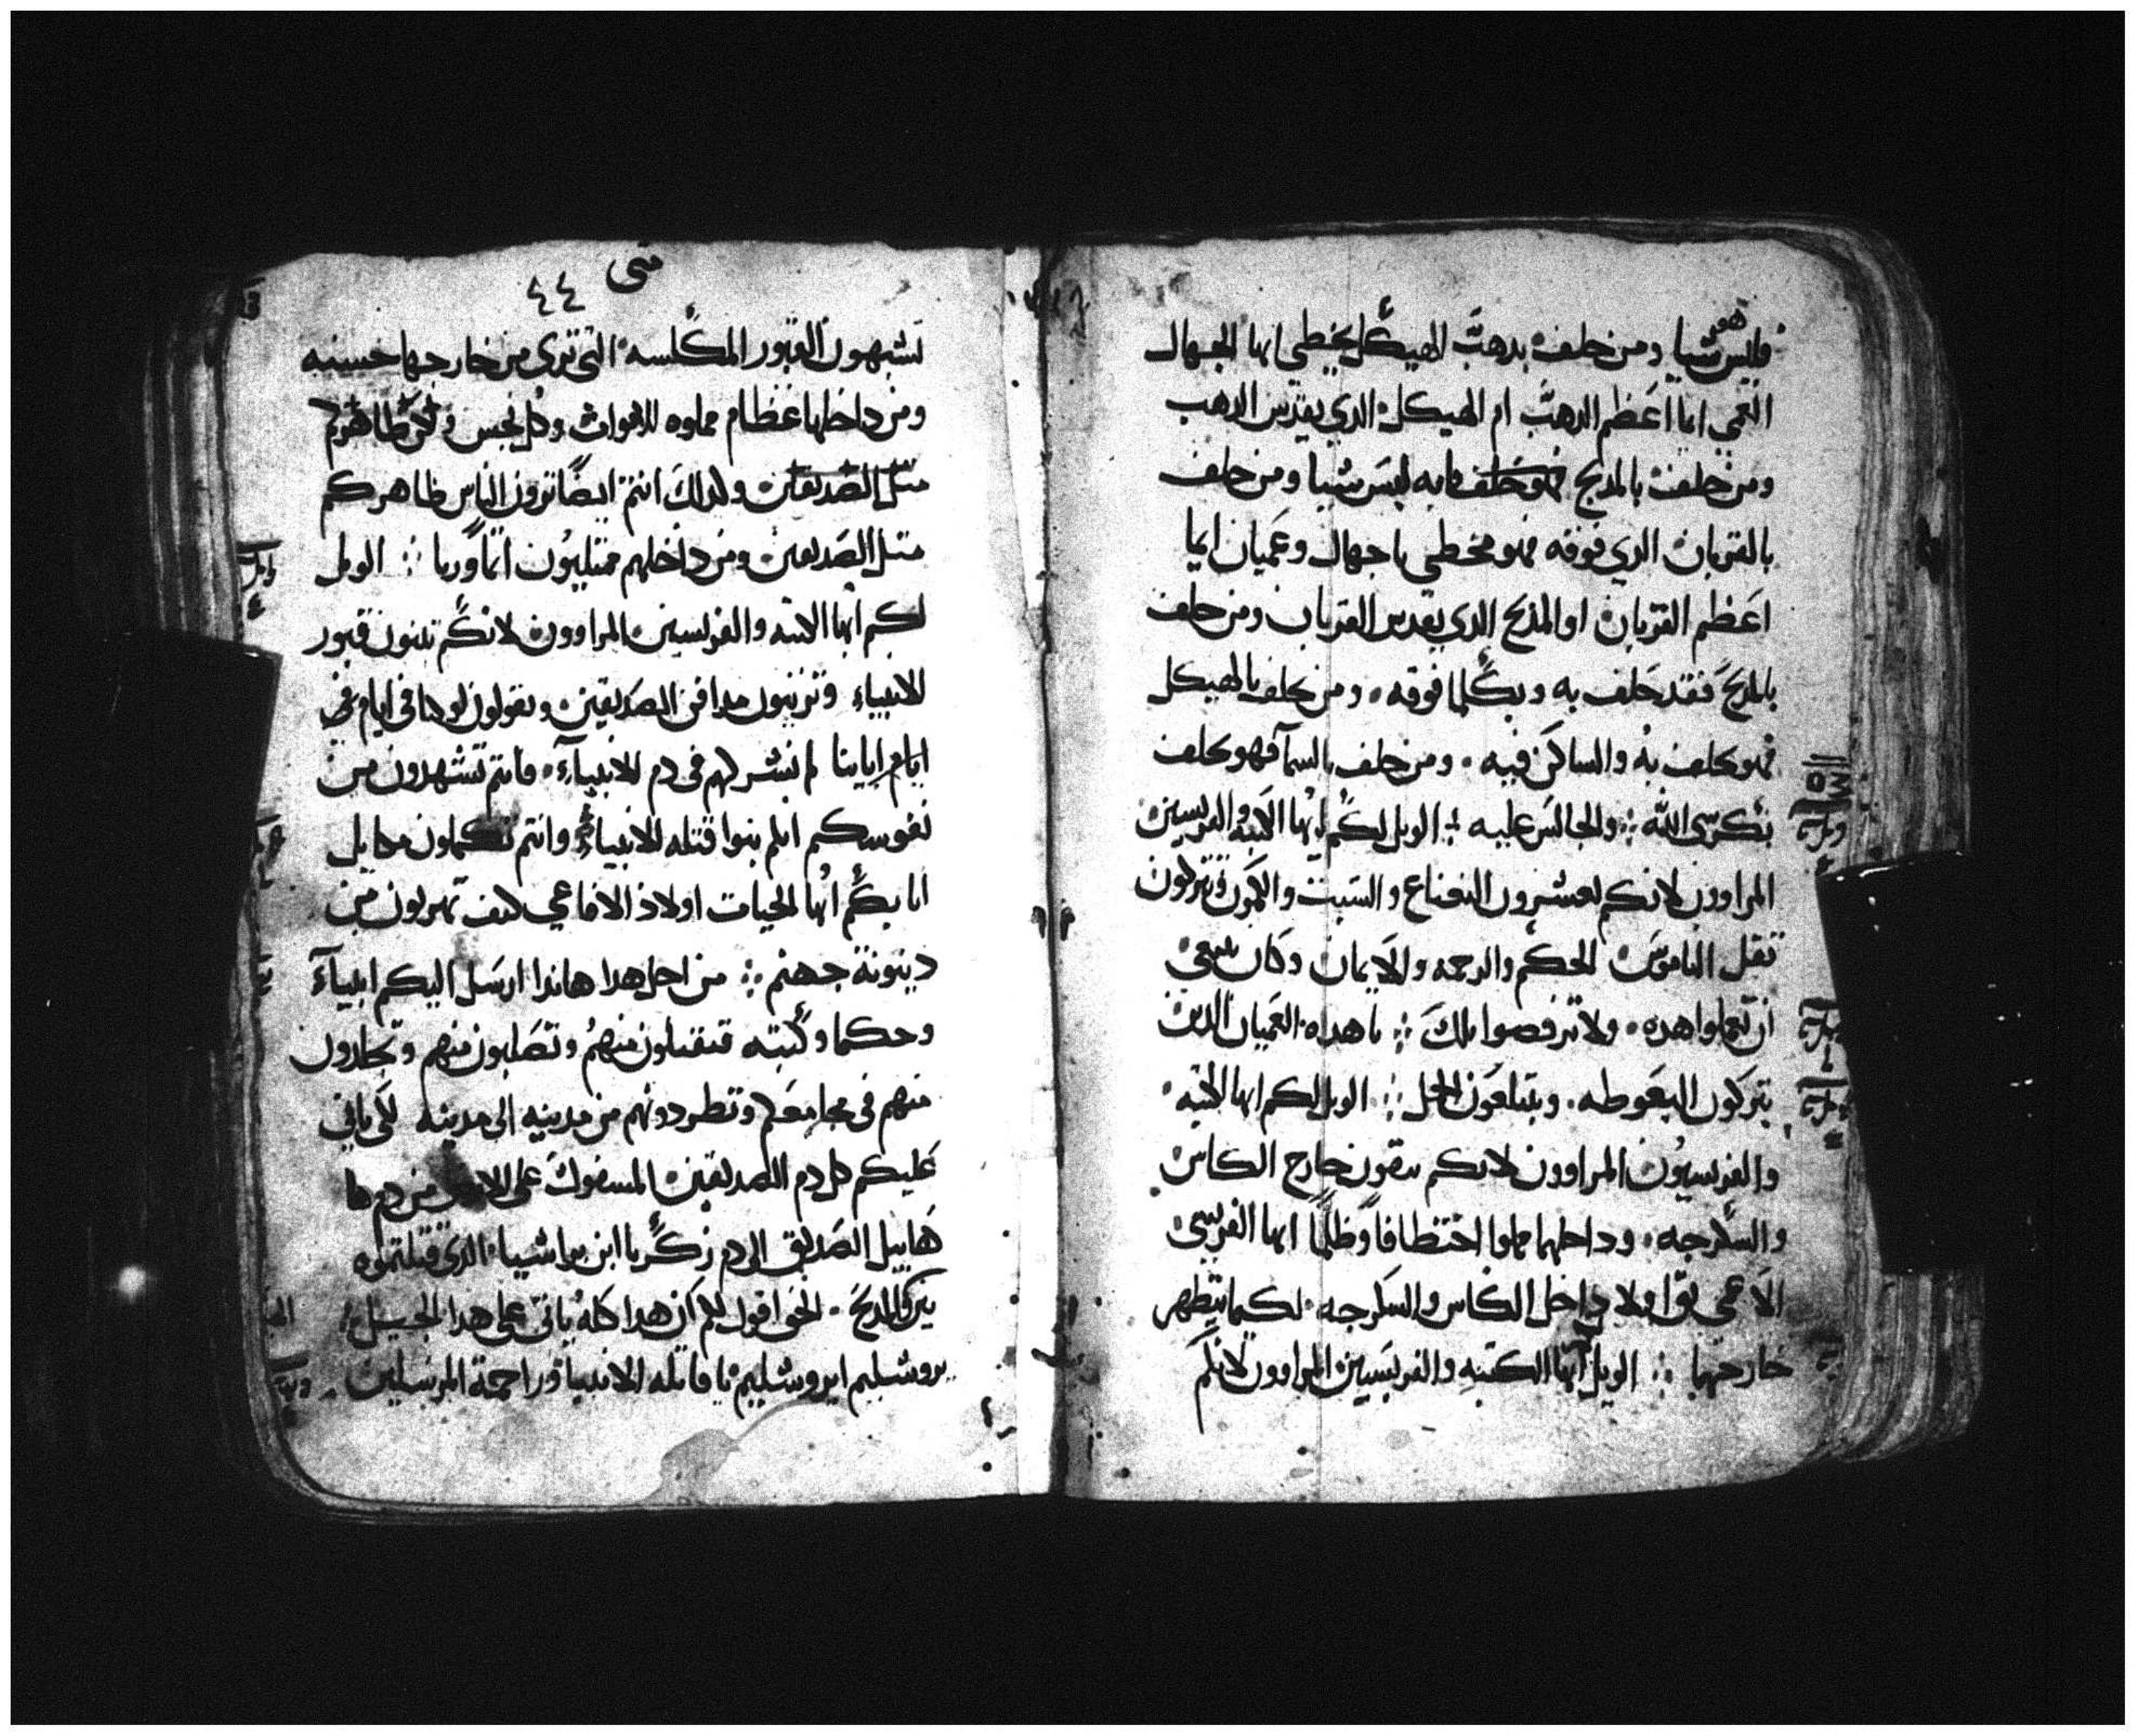 فليس هو شيا ومن حلف بدهب الهيكل يخطي ايها الجهال
العمي ايما اعظم الدهب ام الهيكل الدي يقدس الدهب
ومن حلف بالمدبح فانه ليس شيا ومن حلف
بالقربان الدي فوقه فهو مخطي يا جهال وعميان ايما
اعظم القربان او المدبح الدي يقدس القربان ومن حلف
بالمدبح فقد حلف به وبكلما فوقه ومن حلف بالهيكل
فهو حلف به والساكن فيه ومن حلف بالسما فهو حلف
بكرسي الله والجالس عليه الويل لكم ايها الكتبه والفريسين
المراوون لانكم تعشرون النعناع والشبت والكمون وتتركون
ثقل الناموس الحكم والرحمه والايمان وكان ينبغي
ان تعملوا هده ولا ترفضوا تلك يا هداه العميان الدين
يتركون البعوضه ويبتلعون الجمل الويل لكم ايها الكتبه
والفريسيون المراوون لانكم تنقون خارج الكاس
والسكرجه وداخلهما مملوا اختطافا وظلما ايها الفريسي
الاعمى نق اولا داخل الكاس والسكرجه لكيما يتطهر
خارجهما الويل ايها الكتبه والفريسيين المراوون لانكم
متى ٤٤
تشبهون القبور المكلسه التي ترى من خارجها حسنه
ومن داخلها عظام مملوه الاموات وكل نجس
متل الصديقين ولدلك انتم ايضا ترون الناس ظاهركم
متل الصديقين ومن داخلهم ممتليون اثما وريا الويل
لكم ايها الكتبه والفريسين المراوون لانكم تبنون قبور
الانبياء وتزينون مدافن الصديقين وتقولون لو كنا في ايام
ايام اباينا لم نشركهم في دم الانبياء فانتم تشهدون من
نفوسكم انكم بنوا قتله الانبياء وانتم تكملون مكايل
ابايكم ايها الحيات اولاد الافاعي كيف تهربون من
دينونة جهنم من اجل هدا هاندا ارسل اليكم انبياء
وحكما وكتبه فتقتلون منهم وتصلبون منهم وتجلدون
منهم في مجامعكم وتطردونهم من مدينه الى مدينه لكي ياتي
عليكم كل دم الصديقين المسفوك على الارض من دم
هابيل الصديق الى دم زكريا ابن براشيا الدي قتلتموه
بين المدبح الحق اقول لكم ان هدا كله ياتي على هدا الجيل
يروشليم ايروشليم يا قاتله الانبيا وراجمة المرسلين